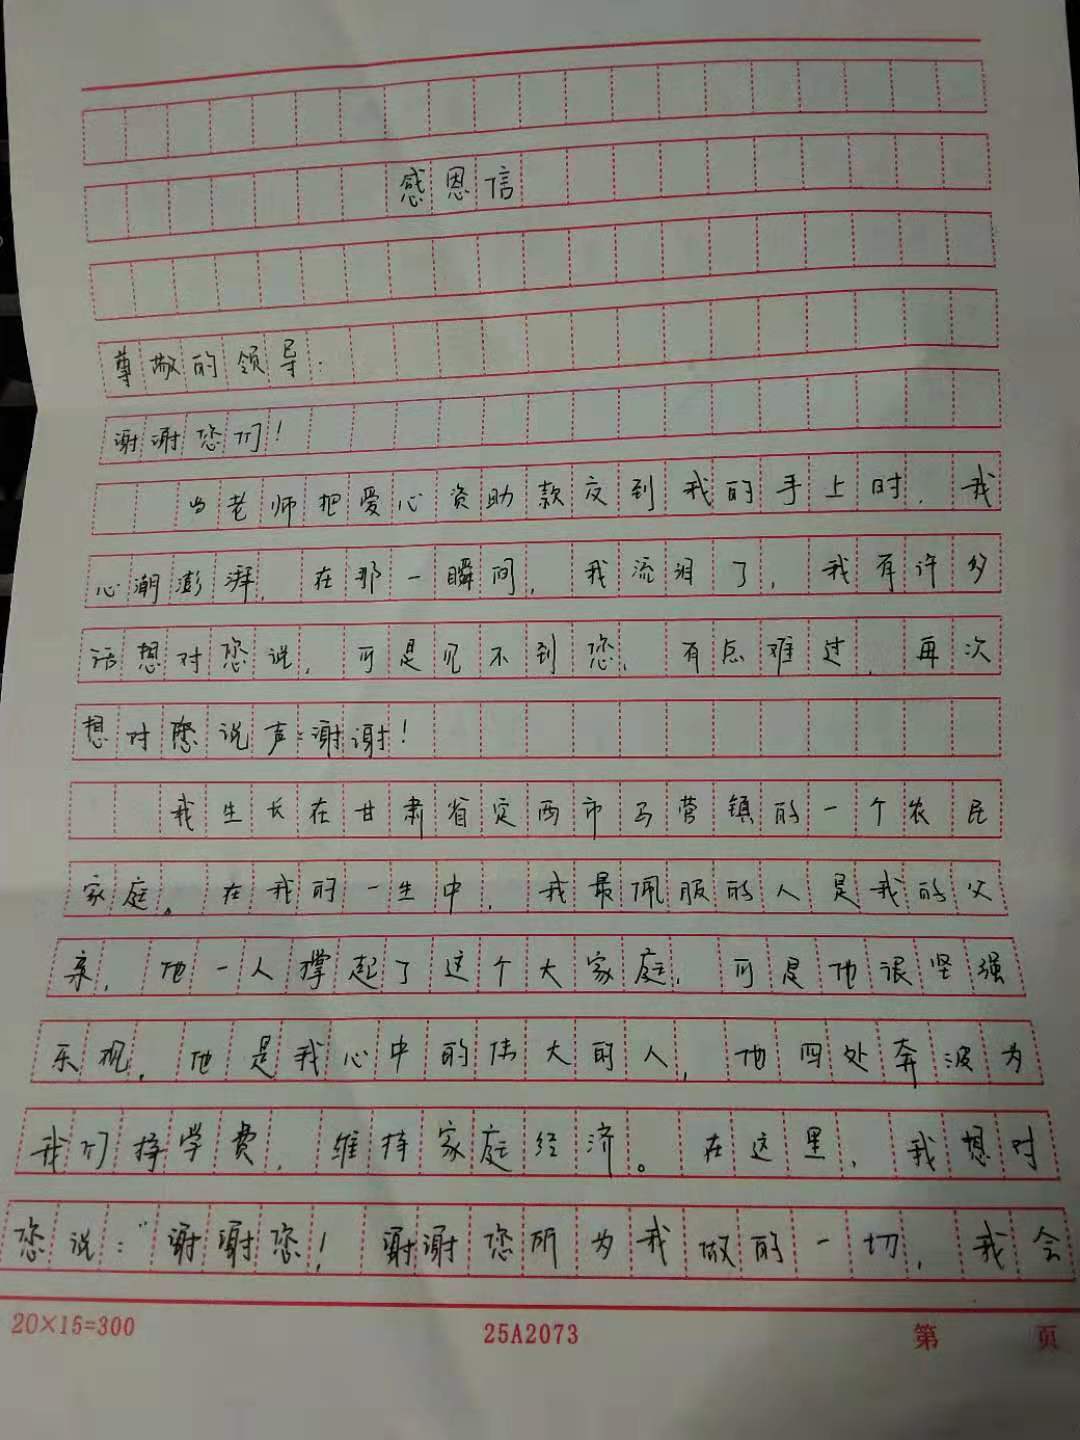 感恩信
尊敬的领导：
谢谢您们！
当老师把爱心资助款交到我的手上时，我
心潮澎湃，在那一瞬间，我流泪了，我有许多
话想对您说，可是见不到您，有点难过，再次
想对您说声：谢谢！
我生长在甘肃省定西市马营镇的一个农民
家庭。在我的一生中，我最佩服的人是我的父
亲，他一人撑起了这个大家庭，可是他很坚强
乐观，他是我心中的伟大的人，他四处奔波为
我们挣学费，维持家庭经济。在这里，我想对
您说：“谢谢您！谢谢您所为我做的一切，我会
20×15=300
25A2073
第 页